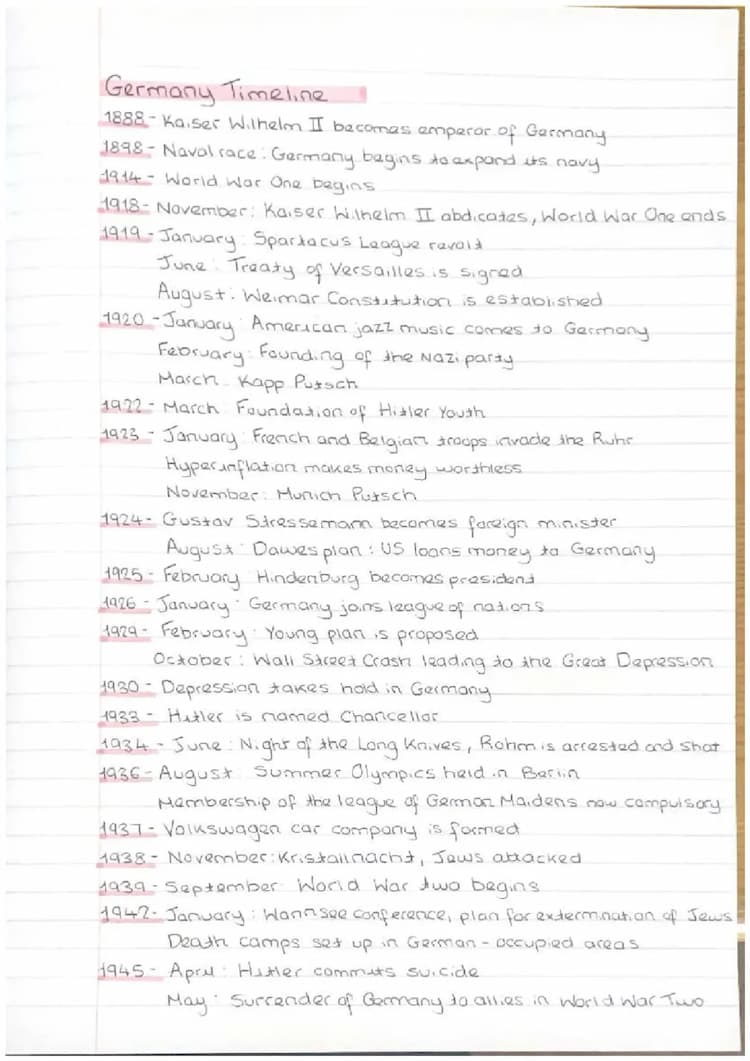 Germany Timeline
1888 - Kaiser Wilhelm II becomes emperor of Germany
1898 - Naval race : Germany begins to expand its navy
1914 - World War One begins
1918 - November : Kaiser Wilhelm II abdicates, World War One ends
1919 - January : Spartacus League revolt
June : Treaty of Versailles is signed
August : Weimar Constitution is established
1920 - January : American jazz music comes to Germany
February : Founding of the Nazi party
March : Kapp Putsch
1922 - March : Foundation of Hitler Youth
1923 - January : French and Belgian troops invade the Ruhr
Hyperinflation makes money worthless
November : Munich Putsch
1924 - Gustav Stressemann becomes foreign minister
August : Dawes plan : US loans money to Germany
1925 - February : Hindenburg becomes president
1926 - January : Germany joins league of nations
1929 - February : Young plan is proposed
October : Wall Street Crash leading to the Great Depression
1930 - Depression takes hold in Germany
1933 - Hitler is named Chancellor
1934 - June : Night of the Long Knives, Rohm is arrested and shot
1936 - August : Summer Olympics held in Berlin
Membership of the league of German Maidens now compulsory
1937 - Volkswagen car company is formed
1938 - November : Kristallnacht, Jews attacked
1939 - September : World War two begins
1942 - January : Wannsee conference, plan for extermination of Jews
Death camps set up in German - occupied areas
1945 - April : Hitler commits suicide
May : Surrender of Germany to allies in World War Two